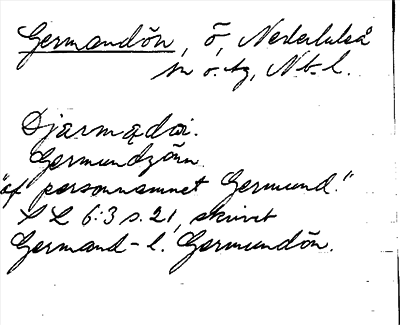 Germandön, ö, Nederluleå
sn o. tg, Nb. l.
Djarmadöi.
Germundzönn
"af personnamnet Germund."
SL 6:3 s. 21, skrivet
Germand- l. Germundön.